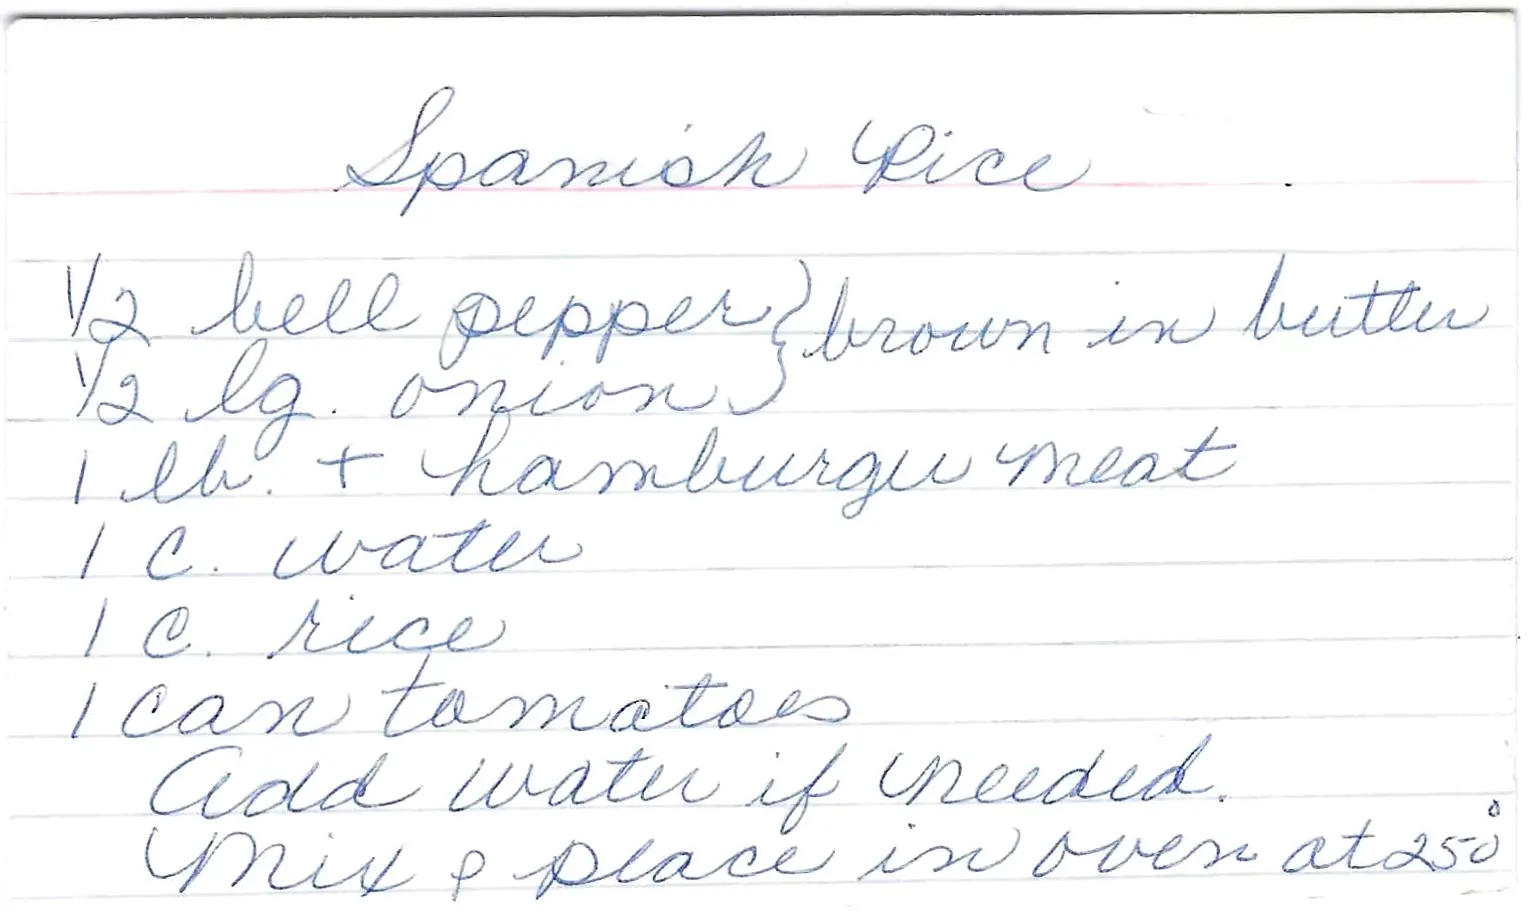 Spanish Rice
1/2 bell pepper } brown in butter
1/2 lg. onion
1 lb. + hamburger meat
1 c. water
1 c. rice
1 can tomatoes
Add water if needed.
Mix & place in oven at 250°